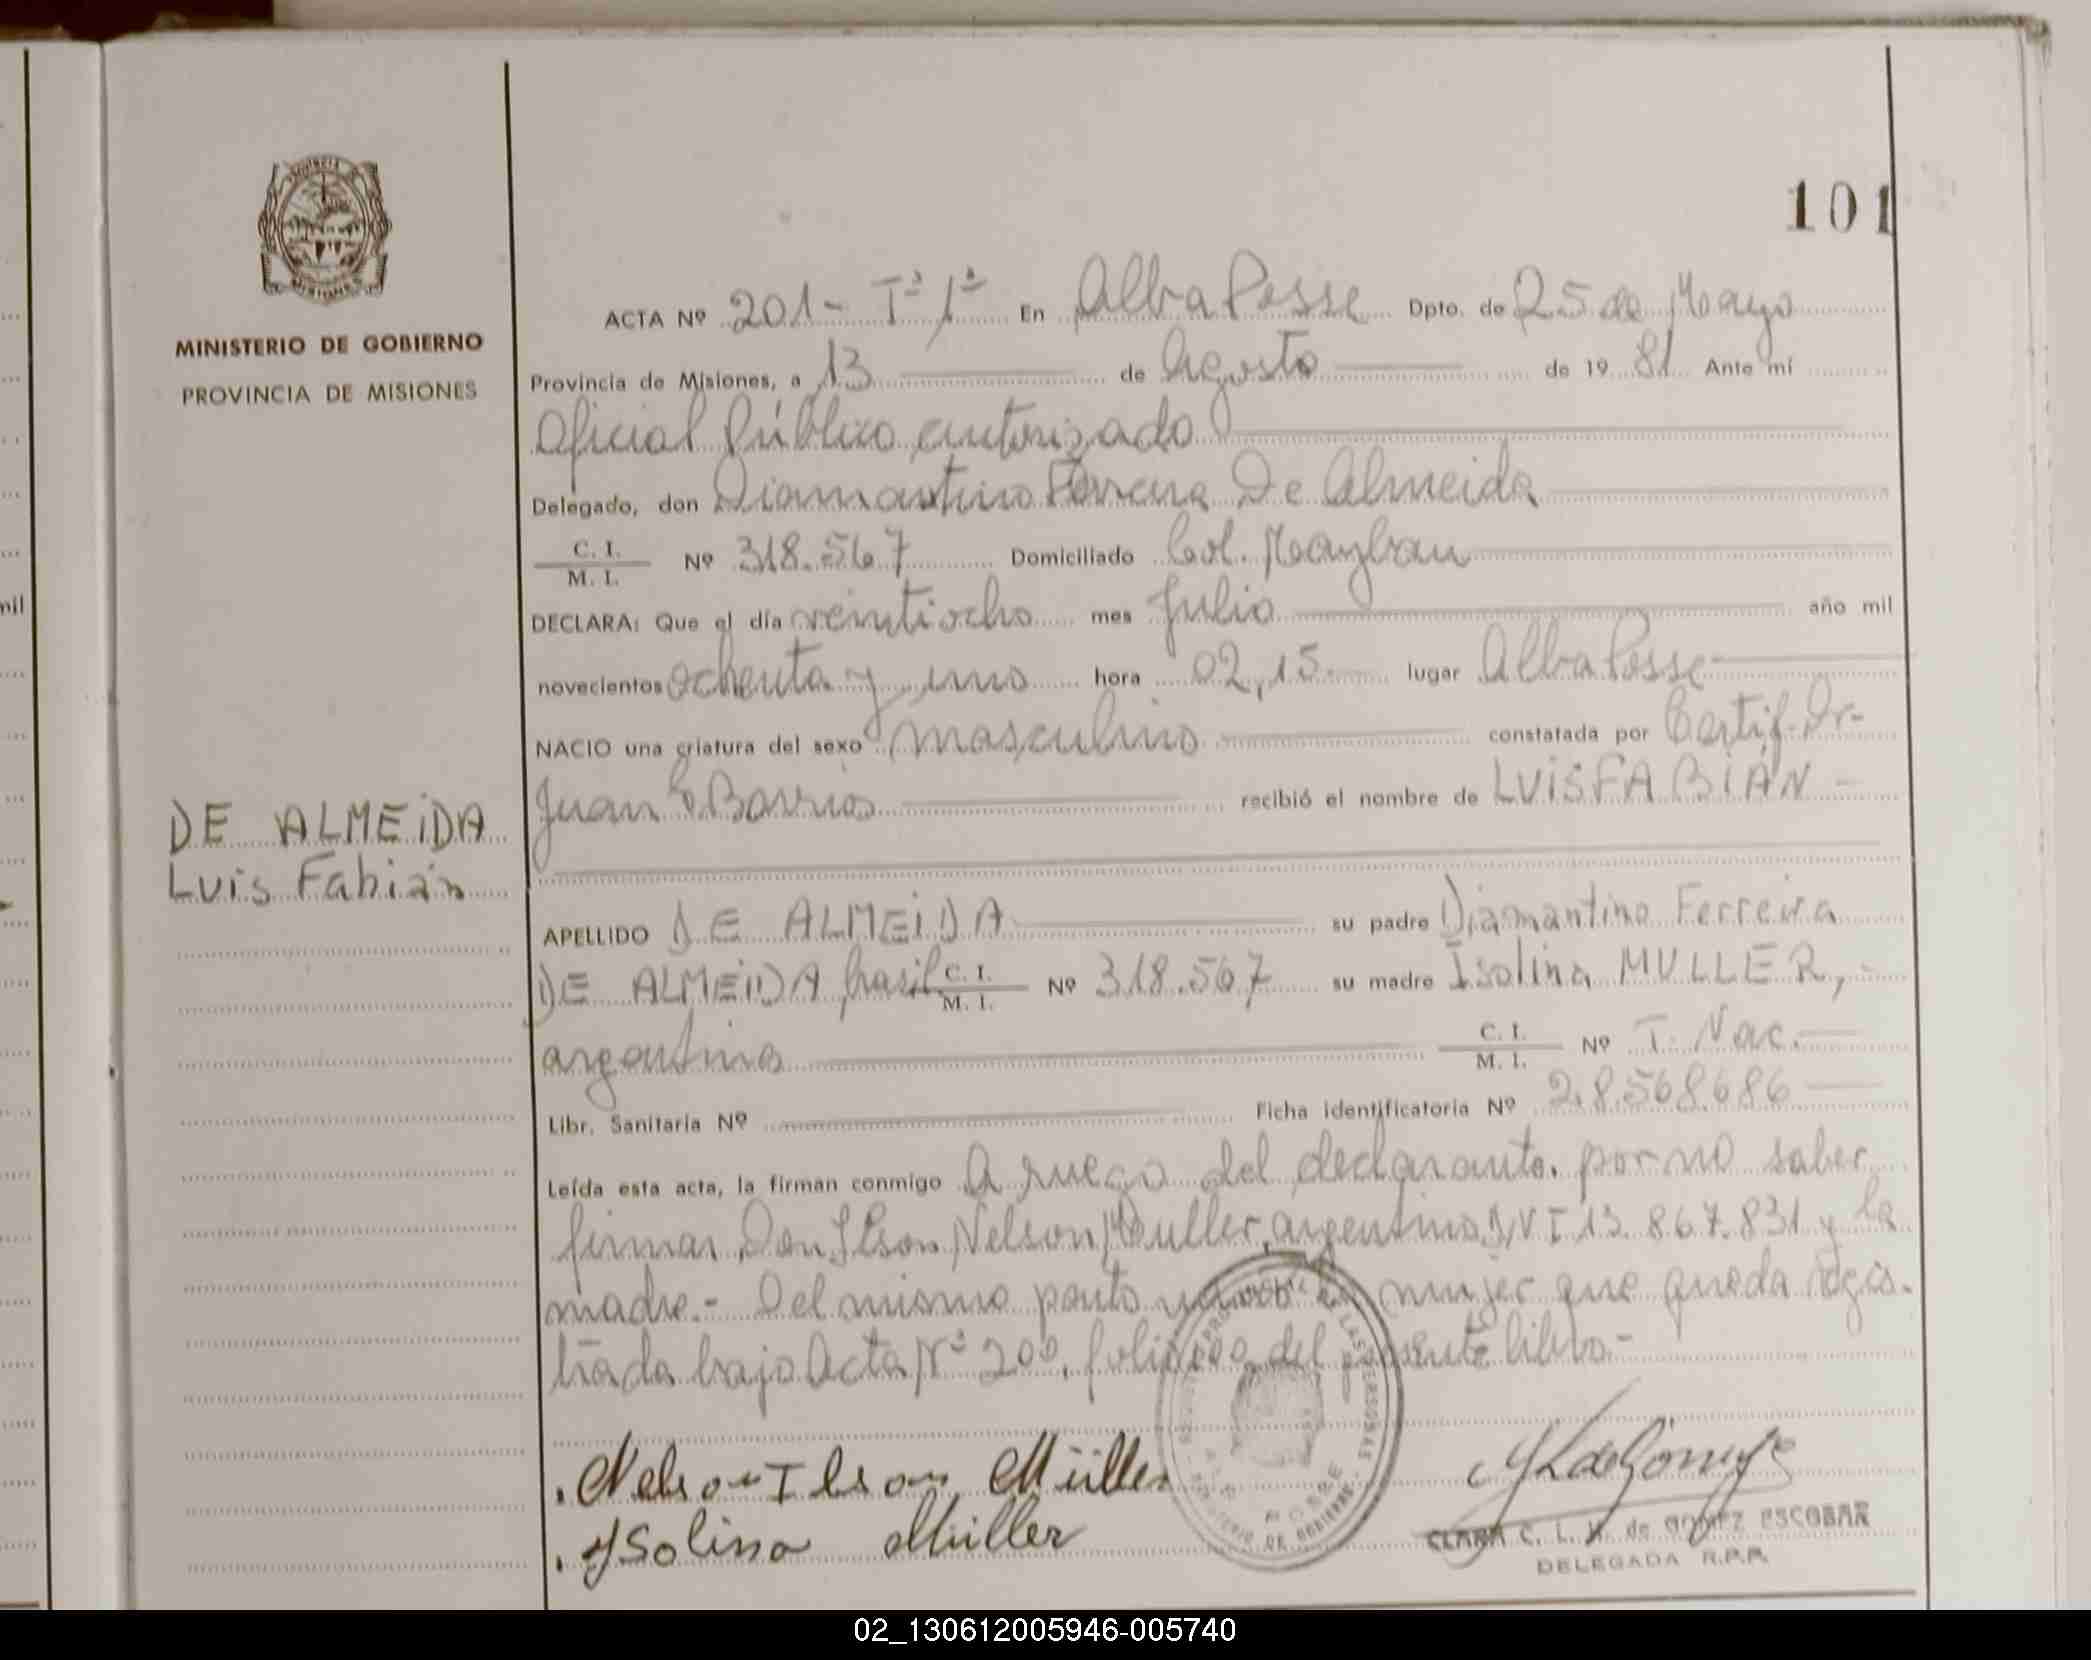 101
MINISTERIO DE GOBIERNO
PROVINCIA DE MISIONES
ACTA Nº 201- Tº 1º En Alba Posse Dpto. de 25 de Mayo
Provincia de Misiones, a 13 de Agosto de 19 81 Ante mí
Oficial Público autorizado
Delegado, don Diamantino Ferreira De Almeida
C. I.
M. I. Nº 318.567 Domiciliado Col.
DECLARA: Que el día veintiocho mes Julio año mil
novecientos ochenta y uno hora 02,15 lugar Alba Posse
NACIO una criatura del sexo masculino constatada por Certif. Dr-
Juan Barrios recibió el nombre de LUIS FABIÁN
DE ALMEIDA
Luis Fabián
APELLIDO DE ALMEIDA su padre Diamantino Ferreira
DE ALMEIDA brasil. C. I. M. I. Nº 318.567 su madre Isolina MULLER,
argentina C. I. M. I. Nº T. Nac.
Libr. Sanitaria Nº Ficha identificatoria Nº 28568686
Leída esta acta, la firman conmigo A ruego del declarante. por no saber
firmar Don Ilson Nelson Muller, argentino, 13.867.831 y la
madre.- Del mismo parto nació mujer que queda regis-
trada bajo Acta Nº 200, folio 100 del presente libro-
Nelson Ilson Müller
Ysolina Müller
PROVINCIAL DE LAS PERSONAS
ALBA POSSE
MINISTERIO DE GOBIERNO
CLARA C. L. de GOMEZ ESCOBAR
DELEGADA R.P.P.
mil
02_130612005946-005740